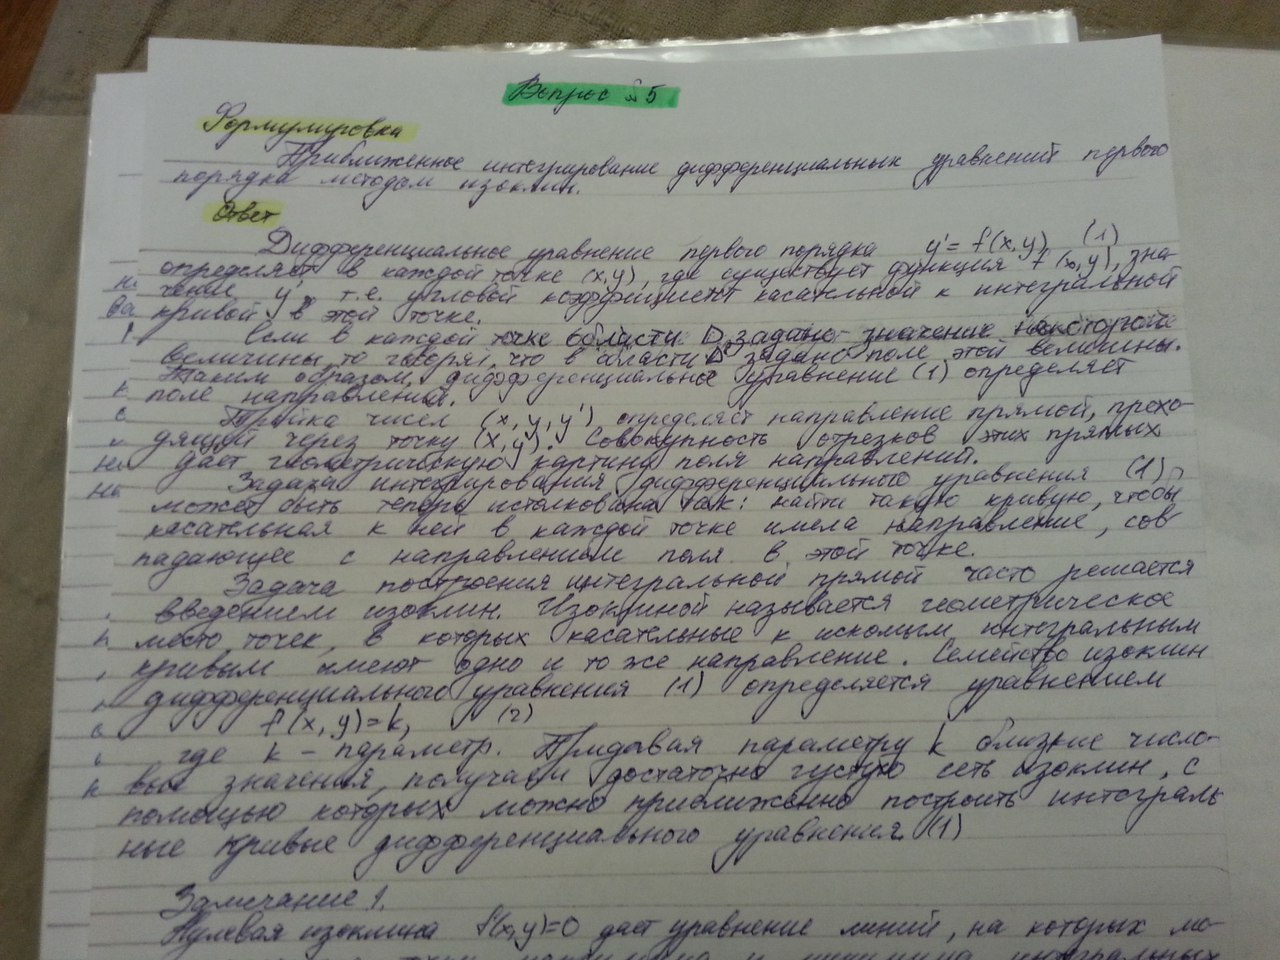 Вопрос №5
Формулировка
Приближенное интегрирование дифференциальных уравнений первого
порядка методом изоклин.
Ответ
Дифференциальное уравнение первого порядка y' = f(x,y) (1)
определяет в каждой точке (x,y), где существует функция f(x,y), зна-
чение y', т.е. угловой коэффициент касательной к интегральной
кривой в этой точке.
Если в каждой точке области D задано значение некоторой
величины, то говорят, что в области D задано поле этой величины.
Таким образом, дифференциальное уравнение (1) определяет
поле направлений.
Тройка чисел (x, y, y') определяет направление прямой, прохо-
дящей через точку (x,y). Совокупность отрезков этих прямых
дает геометрическую картину поля направлений.
Задача интегрирования дифференциального уравнения (1)
может быть теперь истолкована так: найти такую кривую, чтобы
касательная к ней в каждой точке имела направление, сов
падающее с направлением поля в этой точке.
Задача построения интегральной прямой часто решается
введением изоклин. Изоклиной называется геометрическое
место точек, в которых касательные к искомым интегральным
кривым имеют одно и то же направление. Семейство изоклин
дифференциального уравнения (1) определяется уравнением
f(x, y)=k, (2)
где k – параметр. Придавая параметру k близкие число-
вые значения, получаем достаточно густую сеть изоклин, с
помощью которых можно приближенно построить интеграль
ные кривые дифференциального уравнения (1)
Замечание 1.
Нулевая изоклина f(x,y)=0 дает уравнение линий, на которых мо-